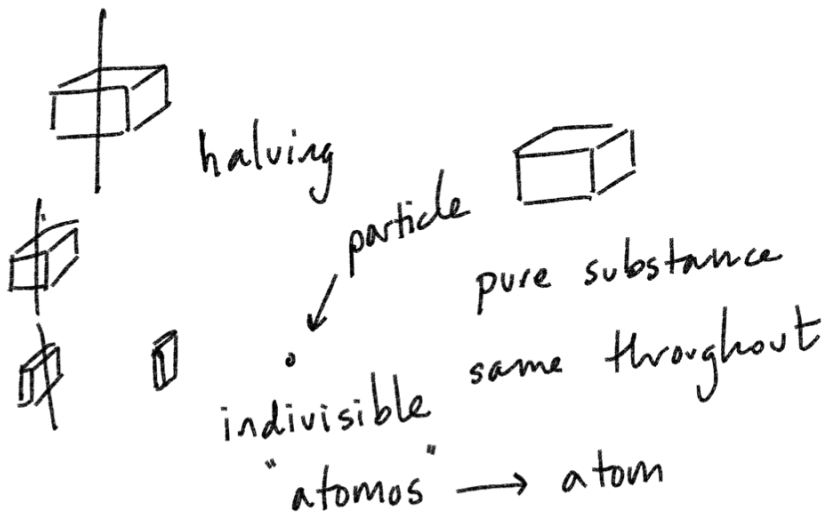 halving
particle
pure substance
same throughout
indivisible
"atomos" → atom